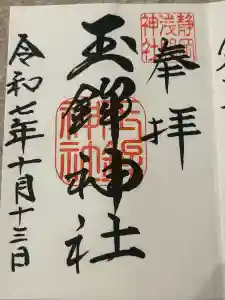 奉拝
静岡
浅間
神社
玉鉾神社
令和七年十月十三日